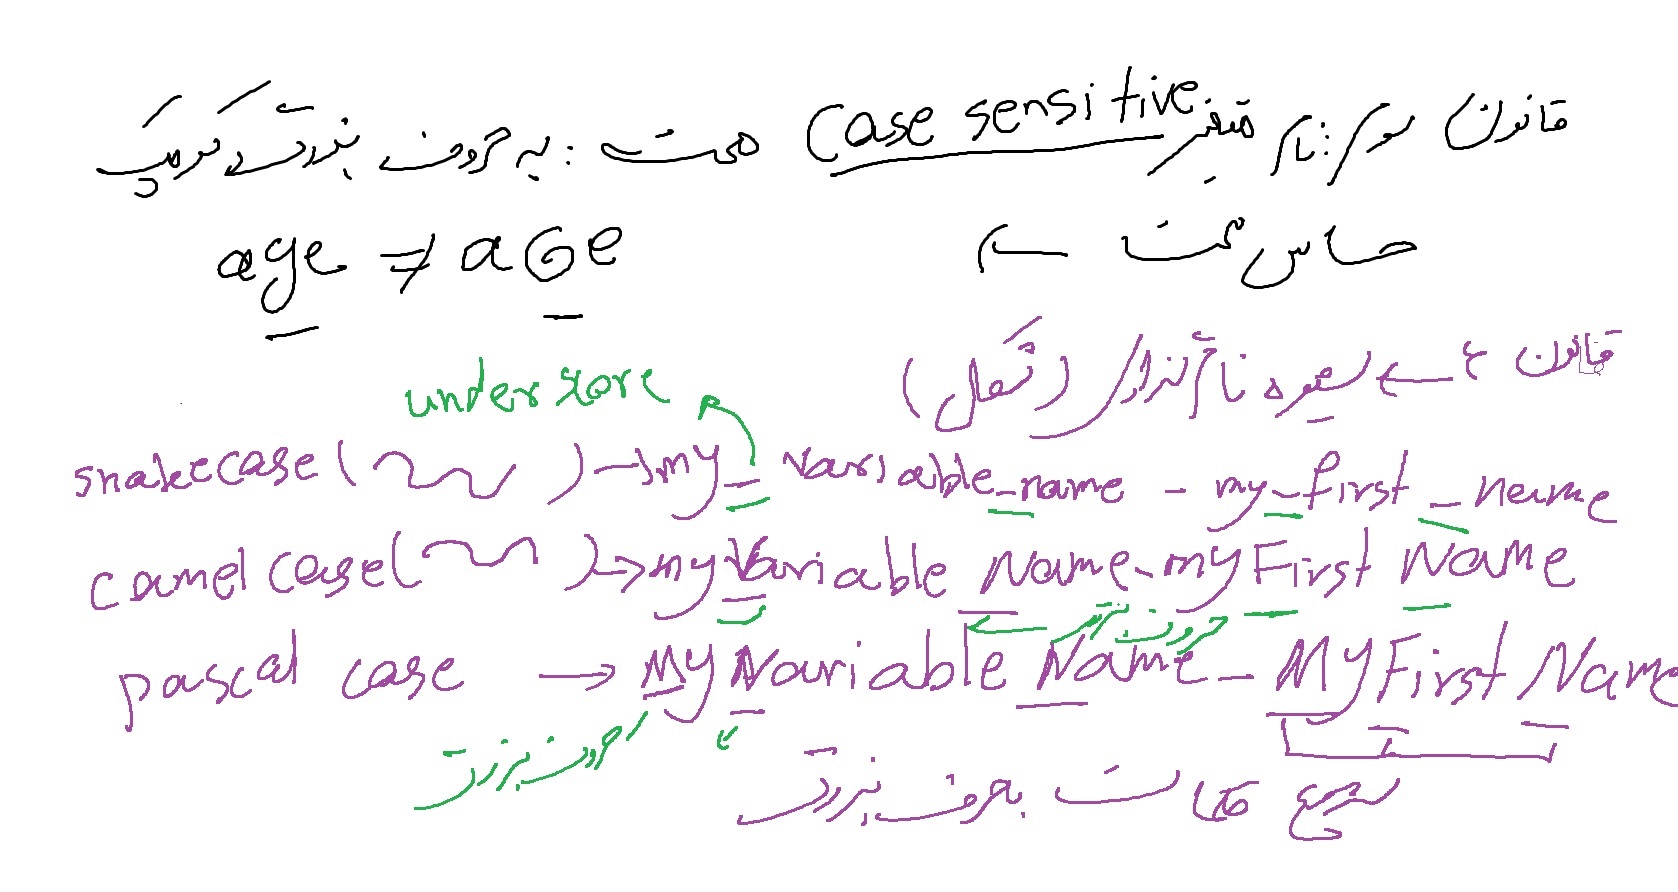 قانون سوم: نام متغیر Case sensitive هست: به حروف بزرگ و کوچک
حساس هست ←
age ≠ aGe
قانون ۴ ← شیوه نام گذاری (شکل)
underscore
snakecase ( ) → my_variable_name - my_first_name
camel case ( ) → myVariableName - myFirstName
حروف بزرگ
pascal case → MyVariableName - MyFirstName
حروف بزرگ
شروع کلمات با حرف بزرگ